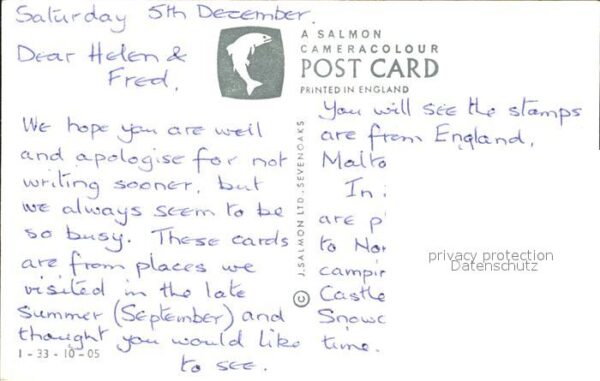 Saturday 5th December.
Dear Helen &
Fred,
We hope you are well
and apologise for not
writing sooner, but
we always seem to be
so busy. These cards
are from places we
visited in the late
summer (September) and
thought you would like
to see.
1-33-10-05
A SALMON
CAMERACOLOUR
POST CARD
PRINTED IN ENGLAND
J. SALMON LTD., SEVENOAKS ©
You will see the stamps
are from England,
Malta
In
are p
to Nor
campin
Castle
Snowd
time.
privacy protection
Datenschutz